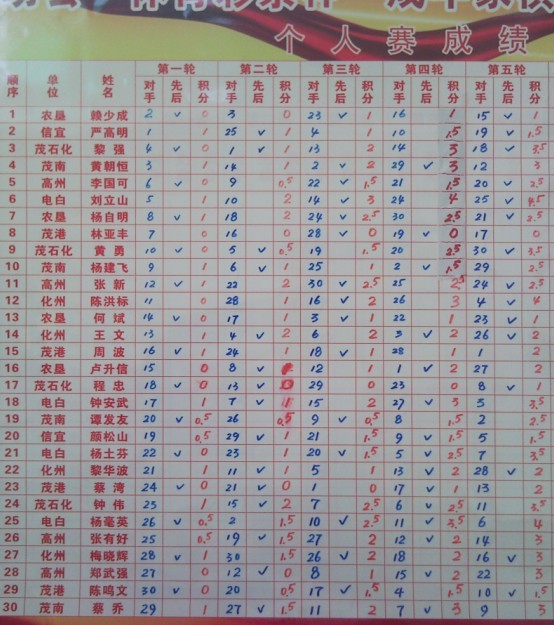 个人赛成绩
第一轮 第二轮 第三轮 第四轮 第五轮
顺序 单位 姓名 对手 先后 积分 对手 先后 积分 对手 先后 积分 对手 先后 积分 对手 先后 积分
1 农垦 赖少成 2 ✓ 0 3 0 23 ✓ 1 16 1 15 ✓ 1
2 信宜 严高明 1 1 25 ✓ 1 4 1 10 1.5 19 ✓ 1.5
3 茂石化 黎强 4 ✓ 0 1 ✓ 1 13 2 14 3 18 ✓ 3.5
4 茂南 黄朝恒 3 1 14 1 2 ✓ 2 29 ✓ 3 12 3
5 高州 李国可 6 ✓ 0 9 0.5 22 ✓ 1.5 21 1.5 20 ✓ 2.5
6 电白 刘立山 5 1 10 2 14 ✓ 3 24 4 25 ✓ 4.5
7 农垦 杨自明 8 ✓ 1 18 2 24 ✓ 2.5 30 2.5 21 ✓ 2.5
8 茂港 林亚丰 7 0 16 0 28 ✓ 0 19 ✓ 0 17 0
9 茂石化 黄勇 10 ✓ 0 5 ✓ 0.5 19 1.5 20 2.5 30 ✓ 3.5
10 茂南 杨建飞 9 1 6 ✓ 1 25 1 2 ✓ 1.5 29 2.5
11 高州 张新 12 ✓ 1 22 2 30 ✓ 2.5 25 2.5 24 ✓ 2.5
12 化州 陈洪标 11 0 28 1 16 ✓ 2 26 3 4 ✓ 4
13 农垦 何斌 14 ✓ 0 17 1 3 ✓ 1 22 1 23 ✓ 1
14 化州 王文 13 1 4 ✓ 2 6 2 3 ✓ 2 26 ✓ 2
15 茂港 周波 16 ✓ 1 24 1 18 ✓ 1 28 1 1 2
16 农垦 卢升信 15 0 8 ✓ 12 1 1 ✓ 2 27 2
17 茂石化 程忠 18 ✓ 0 13 ✓ 0 29 0 23 0 8 ✓ 1
18 电白 钟安武 17 1 7 ✓ 1 15 2 27 ✓ 3 3 3.5
19 茂南 谭发友 20 ✓ 0.5 26 0.5 9 ✓ 0.5 8 1.5 2 2.5
20 信宜 颜松山 19 0.5 29 ✓ 1 21 1.5 9 ✓ 1.5 5 1.5
21 电白 杨土芬 22 ✓ 0 23 1 20 ✓ 1.5 5 ✓ 2.5 7 3.5
22 化州 黎华波 21 1 11 ✓ 1 5 1 13 ✓ 2 28 ✓ 2
23 茂港 蔡湾 24 ✓ 0 21 ✓ 0 1 0 17 ✓ 1 13 2
24 茂石化 钟伟 23 1 15 ✓ 2 7 2.5 6 ✓ 2.5 11 3.5
25 电白 杨毫英 26 ✓ 0.5 2 1.5 10 ✓ 2.5 11 ✓ 3.5 6 4
26 高州 张有好 25 0.5 19 ✓ 1.5 27 2 12 ✓ 2 14 3
27 化州 梅晓辉 28 ✓ 1 30 1.5 26 ✓ 2 18 2 16 ✓ 3
28 高州 郑武强 27 0 12 ✓ 0 8 1 15 ✓ 2 22 3
29 茂港 陈鸣文 30 ✓ 0 20 0.5 17 ✓ 1.5 4 1.5 10 ✓ 1.5
30 茂南 蔡乔 29 1 27 ✓ 1.5 11 2 7 ✓ 3 9 3